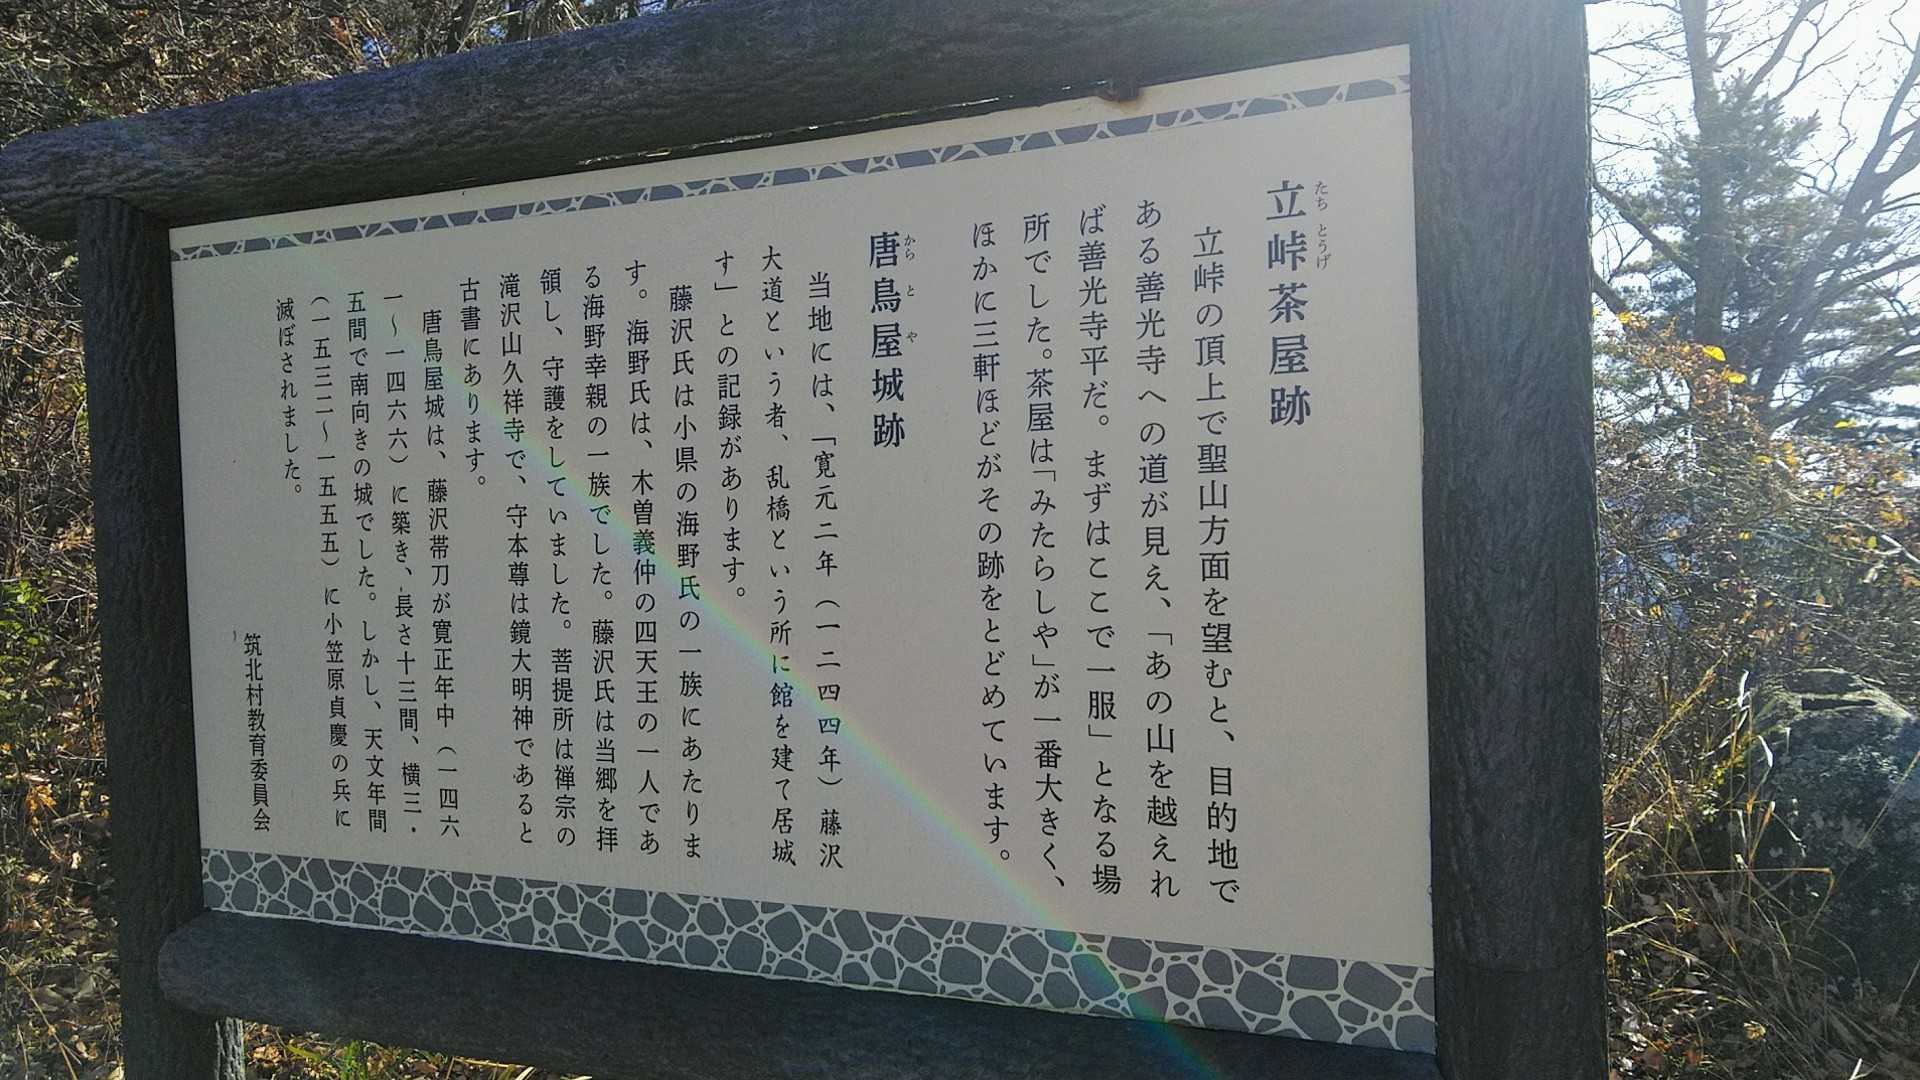 立峠茶屋跡
たち とうげ
立峠の頂上で聖山方面を望むと、目的地で
ある善光寺への道が見え、「あの山を越えれ
ば善光寺平だ。まずはここで一服」となる場
所でした。茶屋は「みたらしや」が一番大きく、
ほかに三軒ほどがその跡をとどめています。
唐鳥屋城跡
から と や
当地には、「寛元二年（一二四四年）藤沢
大道という者、乱橋という所に館を建て居城
す」との記録があります。
藤沢氏は小県の海野氏の一族にあたりま
す。海野氏は、木曽義仲の四天王の一人であ
る海野幸親の一族でした。藤沢氏は当郷を拝
領し、守護をしていました。菩提所は禅宗の
滝沢山久祥寺で、守本尊は鏡大明神であると
古書にあります。
唐鳥屋城は、藤沢帯刀が寛正年中（一四六
一～一四六六）に築き、長さ十三間、横三・
五間で南向きの城でした。しかし、天文年間
（一五三二～一五五五）に小笠原貞慶の兵に
滅ぼされました。
筑北村教育委員会